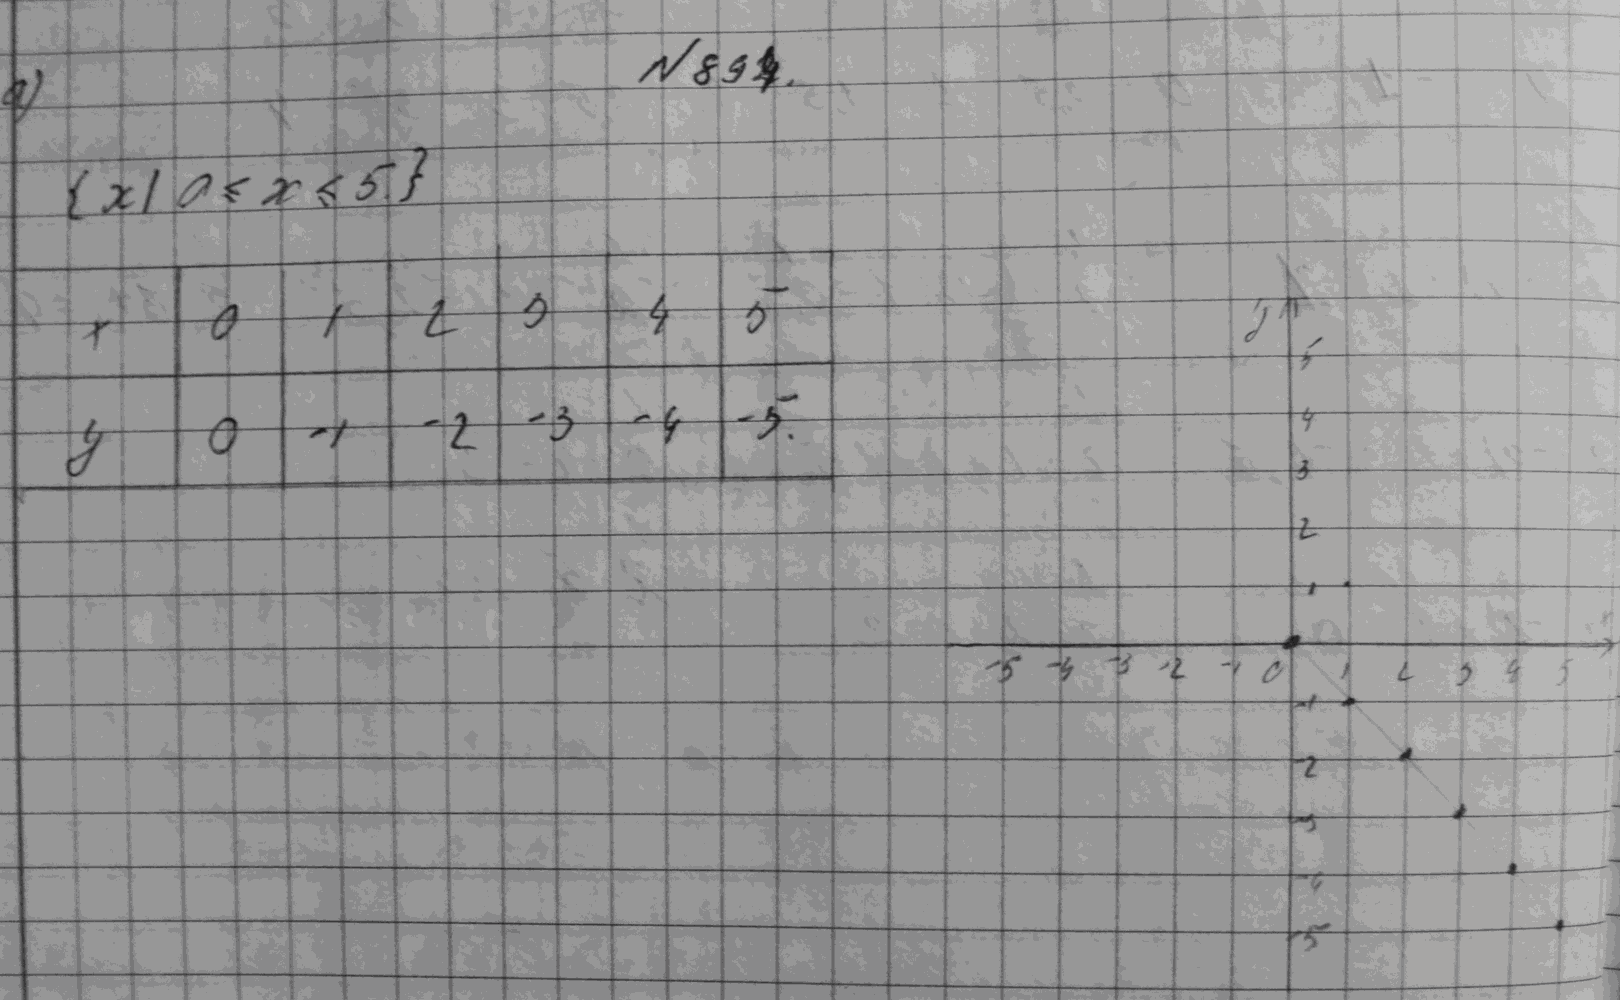 а)
{x | 0 ≤ x ≤ 5}
x 0 1 2 3 4 5
y 0 -1 -2 -3 -4 -5.
y
5
4
3
2
1
-5 -4 -3 -2 -1 0 1 2 3 4 5
-1
-2
-3
-4
-5